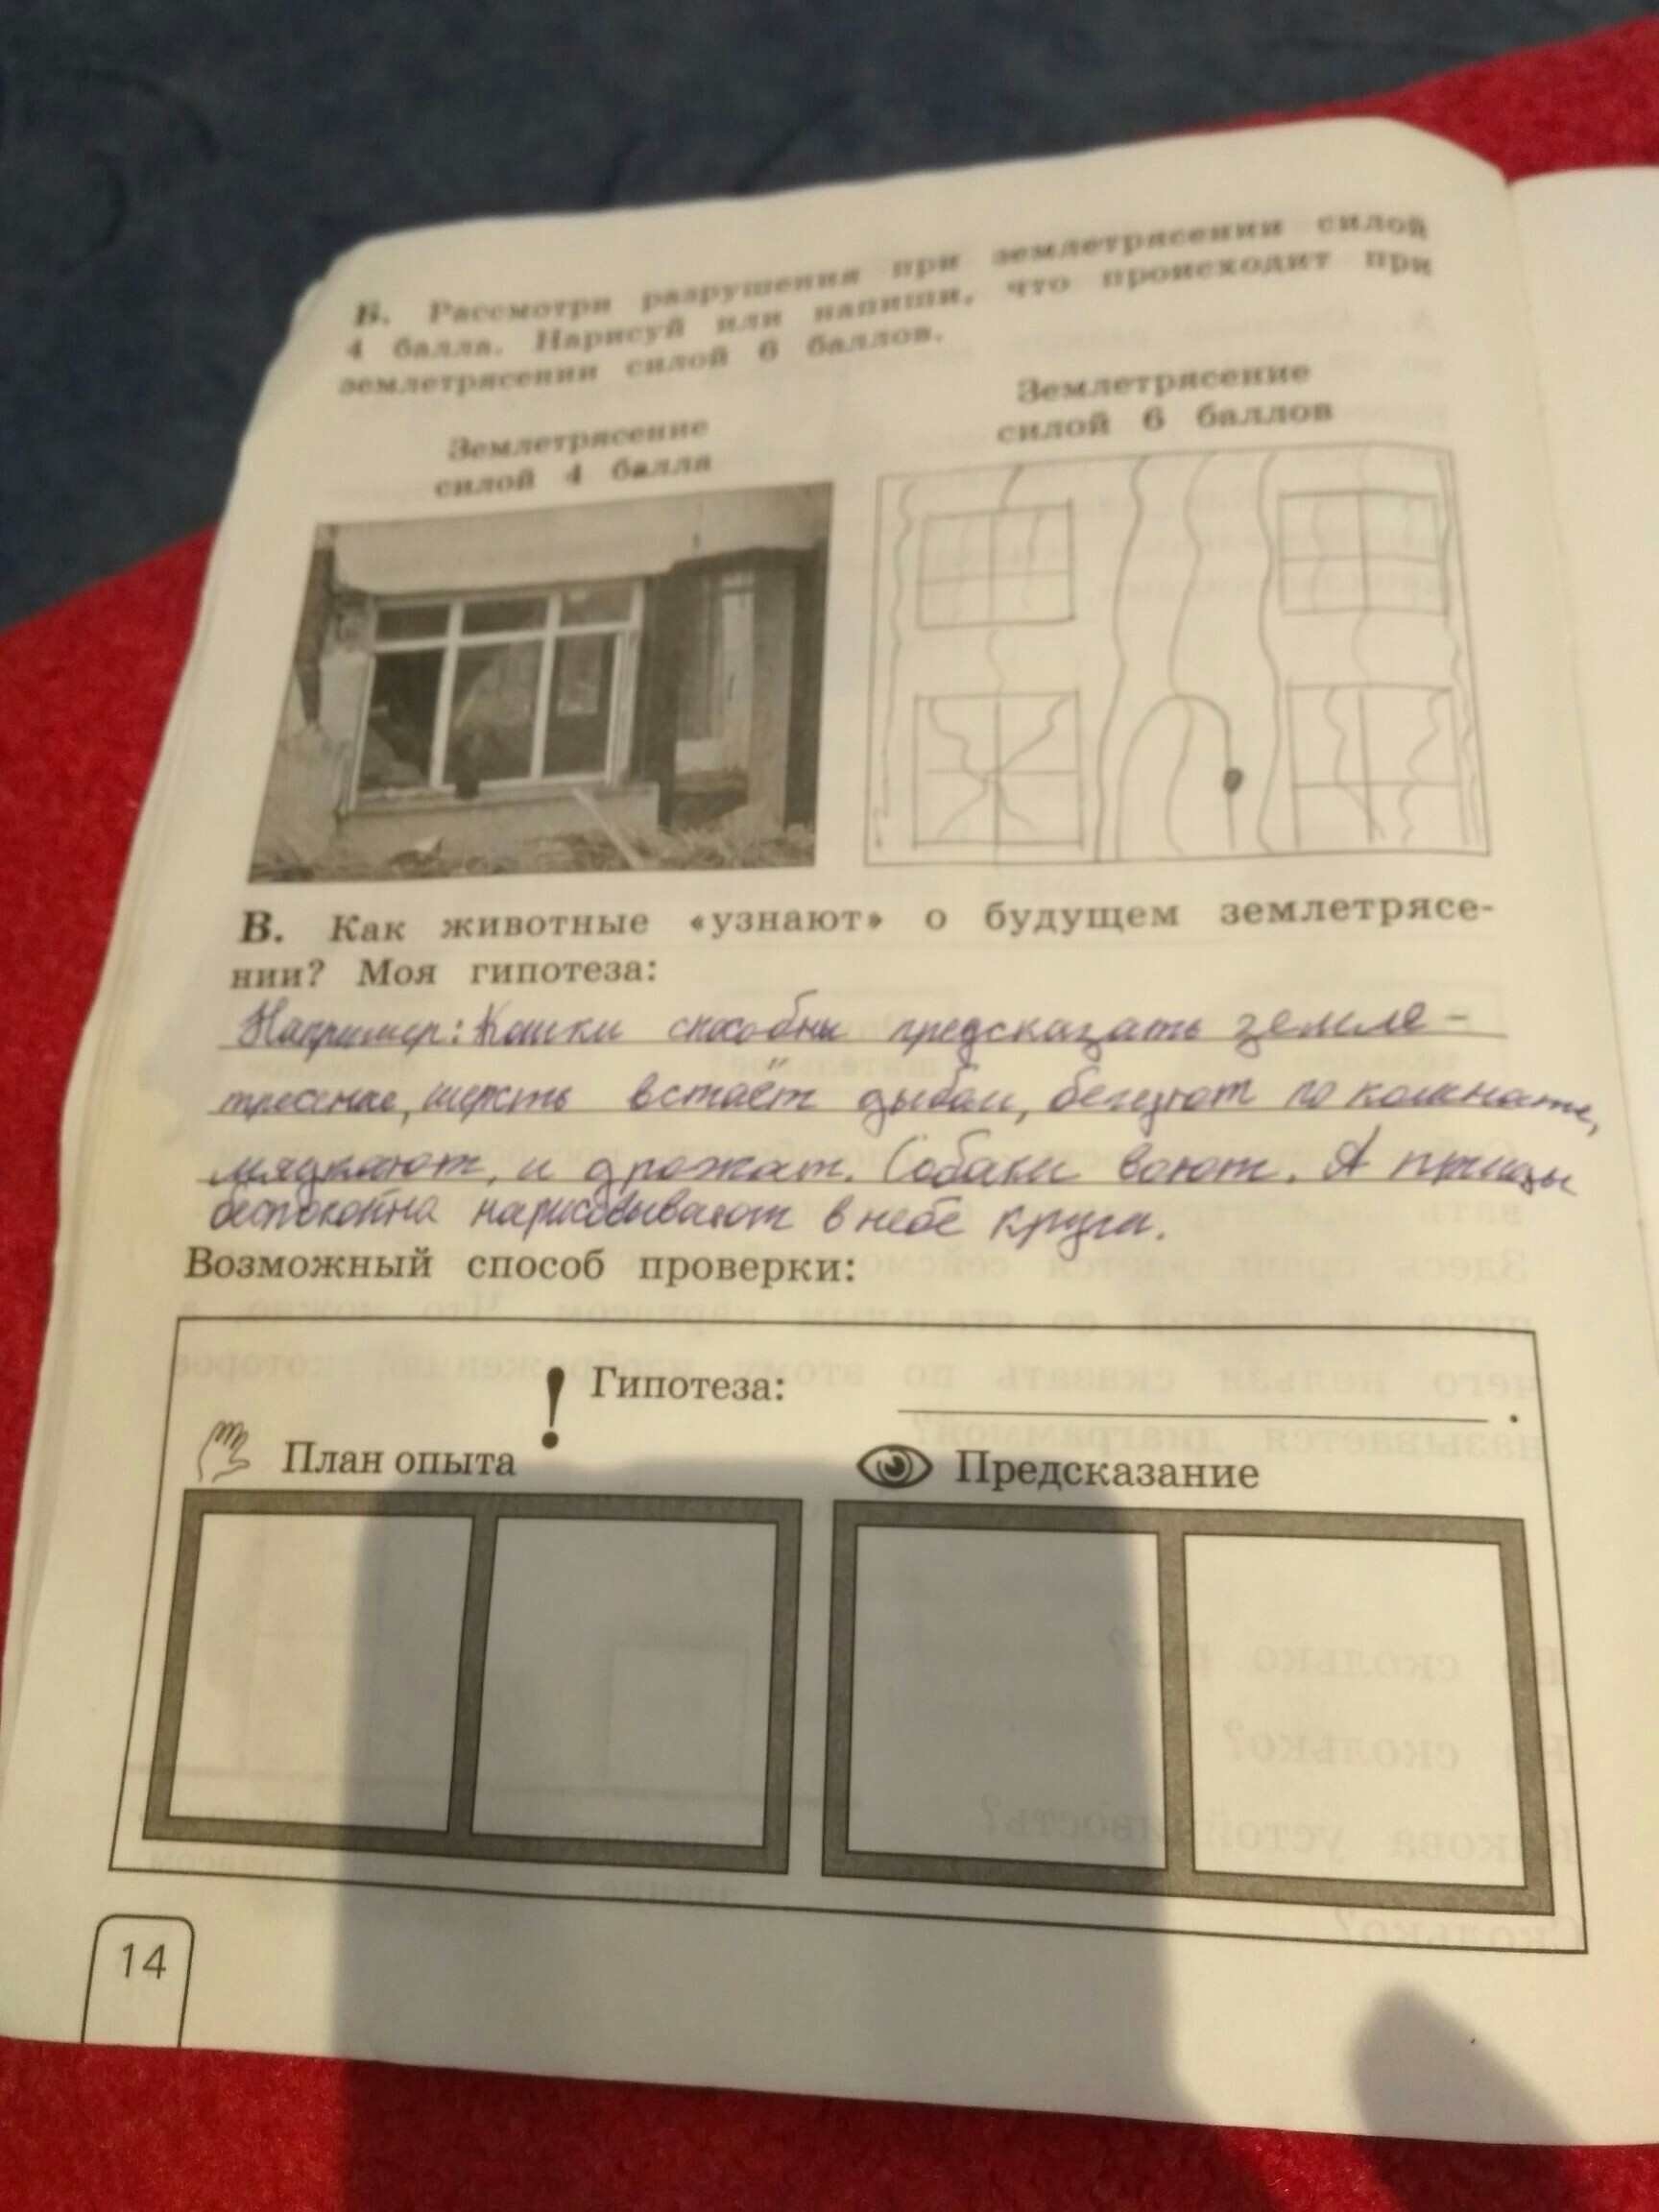 Б. Рассмотри разрушения при землетрясении силой
4 балла. Нарисуй или напиши, что происходит при
землетрясении силой 6 баллов.
Землетрясение
силой 4 балла
Землетрясение
силой 6 баллов
В. Как животные «узнают» о будущем землетрясе-
нии? Моя гипотеза:
Например: Кошки способны предсказать земле-
тресение, шерсть встаёт дыбом, бегают по комнате,
мяукают, и дрожат. Собаки воют. А птицы
беспокойна нарисовывают в небе круги.
Возможный способ проверки:
! Гипотеза:
План опыта
Предсказание
14